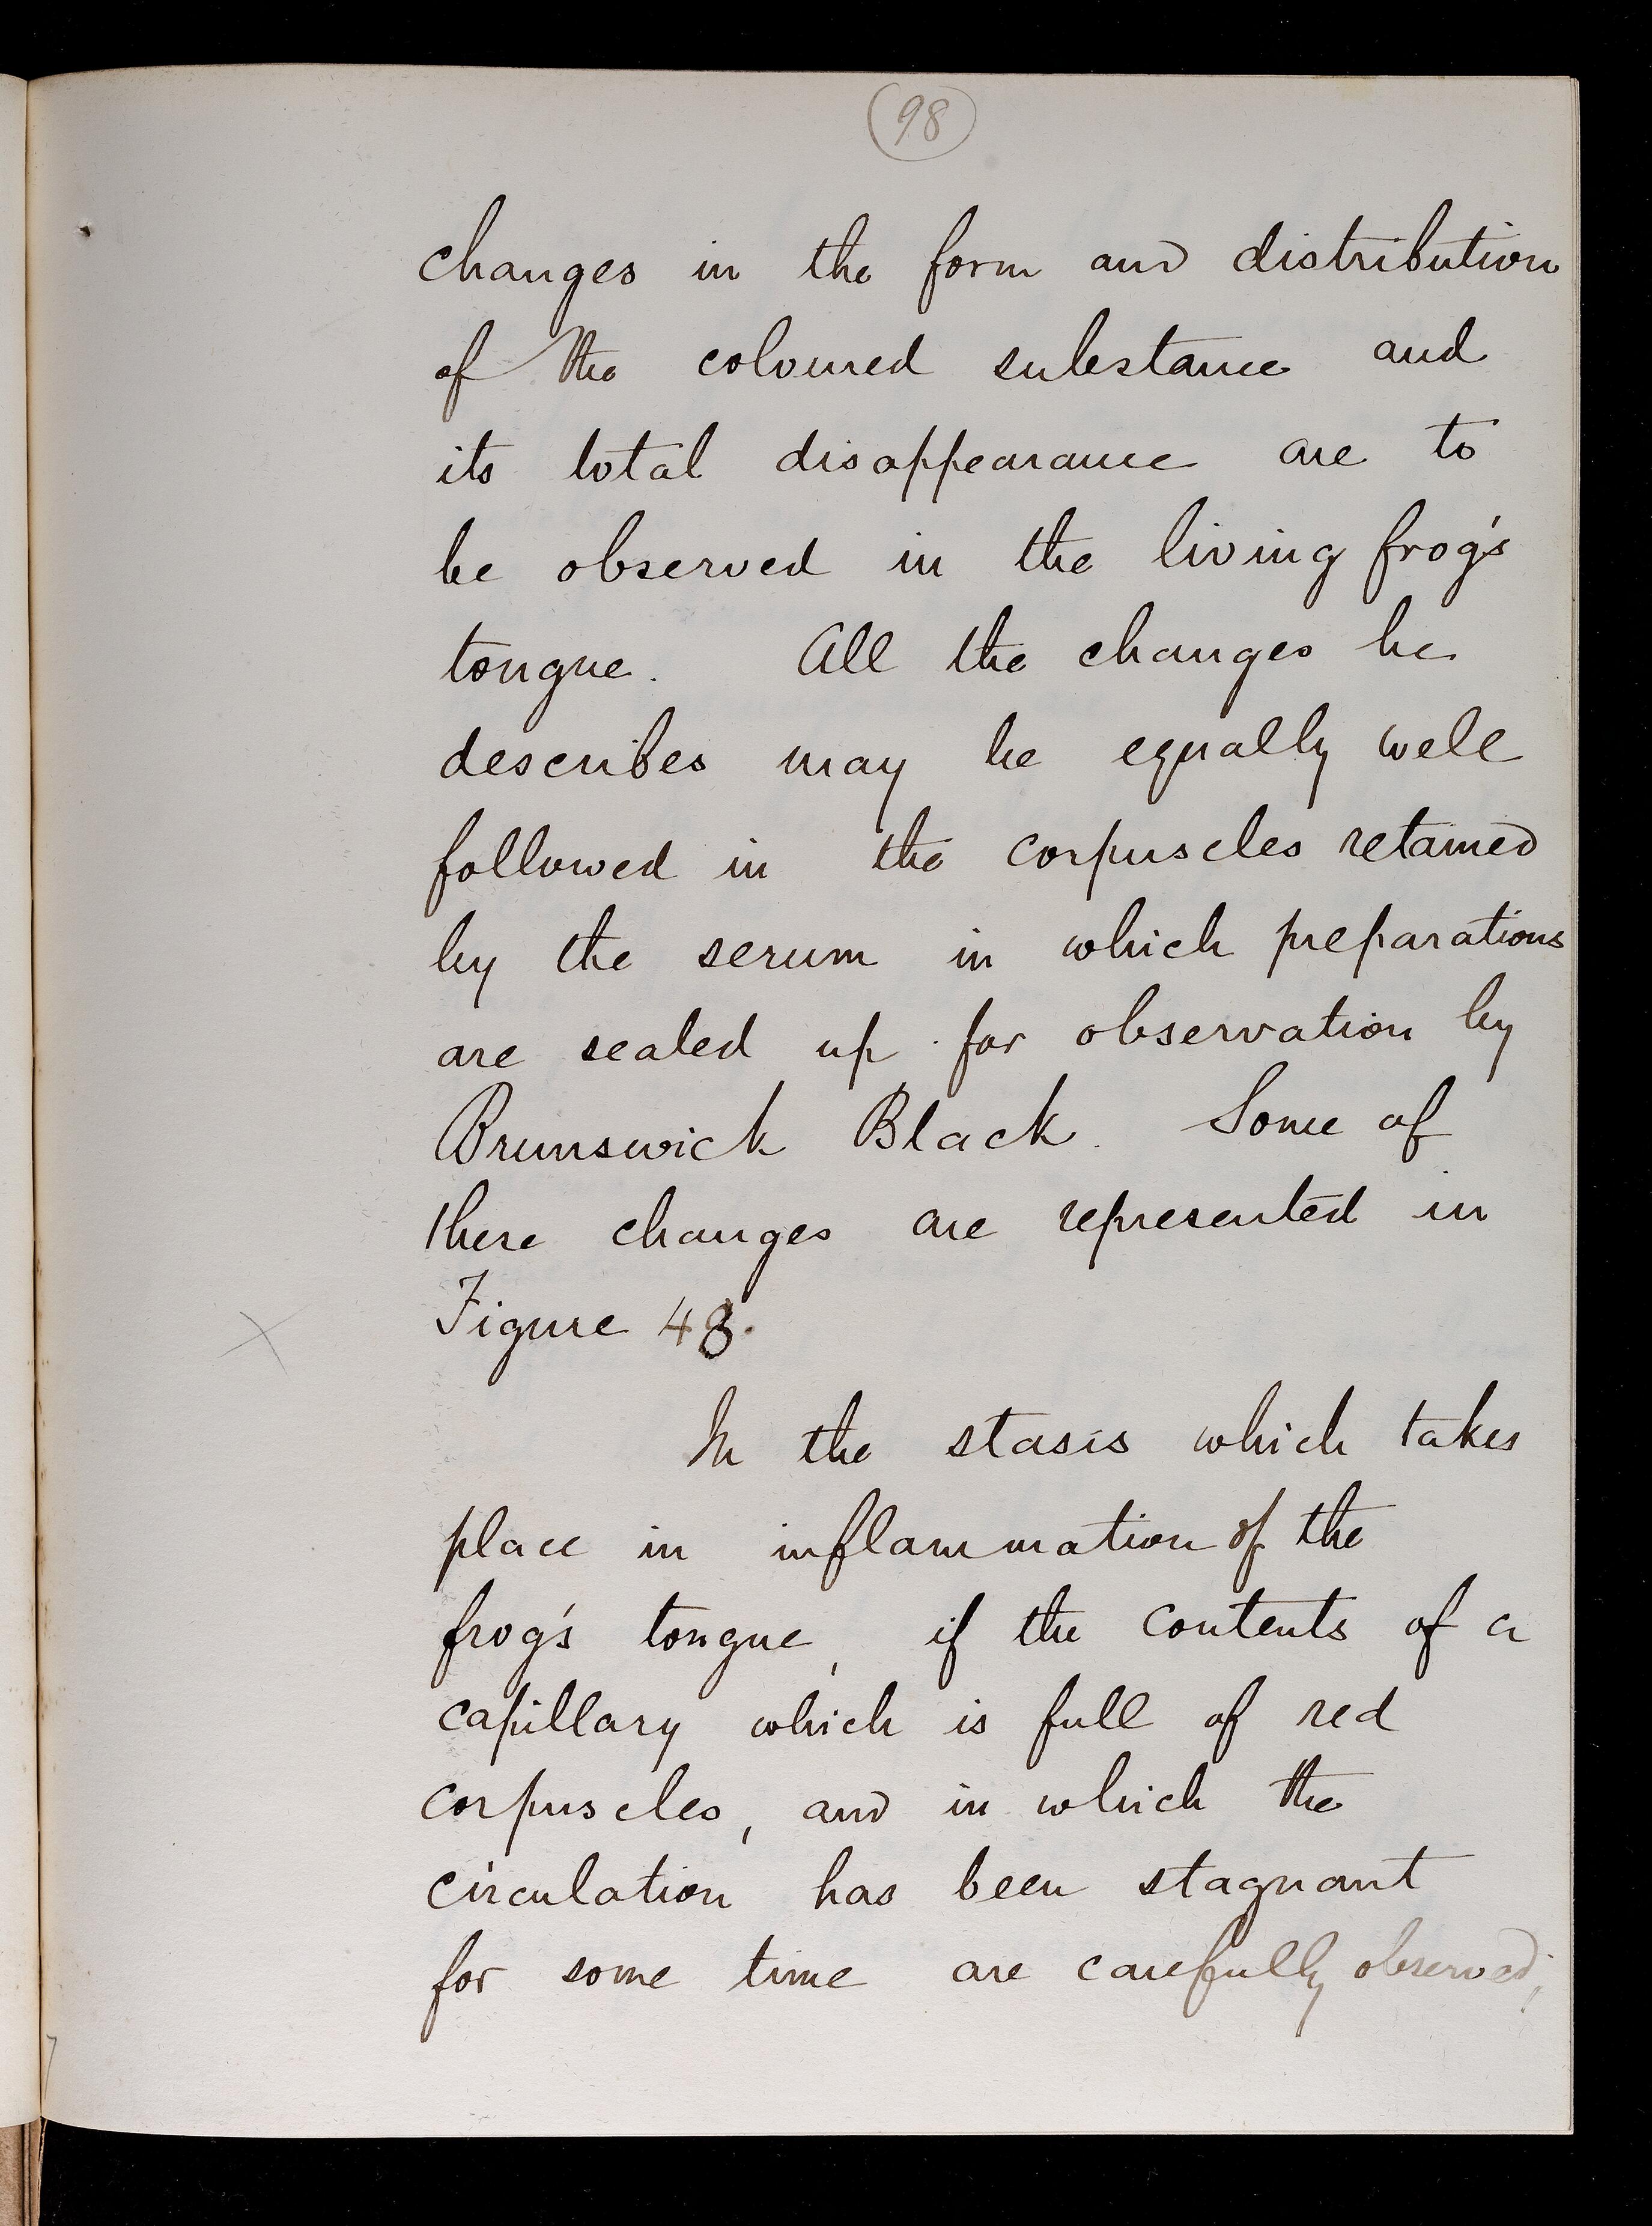 98
changes in the form and distribution
of the coloured substance and
its total disappearance are to
be observed in the living frog's
tongue. All the changes he
describes may be equally well
followed in the corpuscles retained
by the serum in which preparations
are sealed up for observation by
Brunswick Black. Some of
these changes are represented in
Figure 48.
In the stasis which takes
place in inflammation of the
frog's tongue, if the contents of a
capillary which is full of red
corpuscles, and in which the
circulation has been stagnant
for some time are carefully observed,